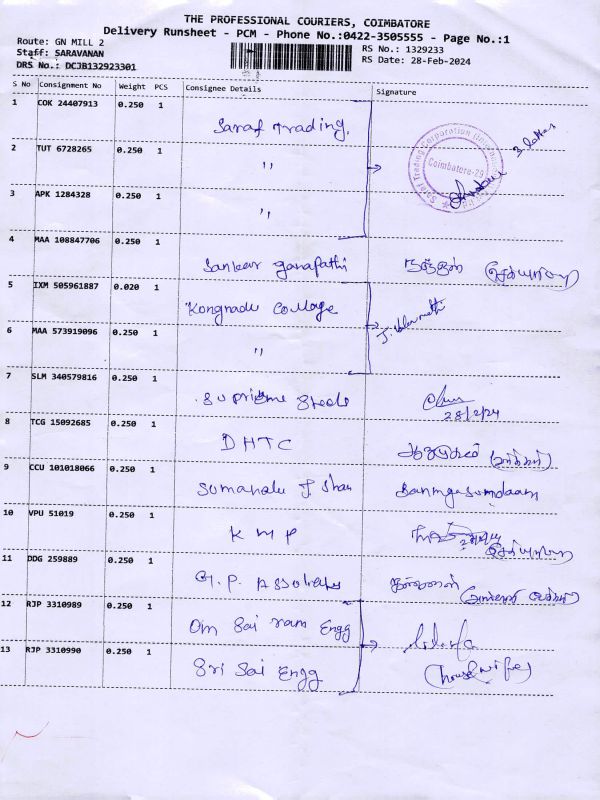 THE PROFESSIONAL COURIERS, COIMBATORE
Delivery Runsheet - PCM - Phone No.:0422-3505555 - Page No.:1
Route: GN MILL 2
RS No.: 1329233
Staff: SARAVANAN
RS Date: 28-Feb-2024
DRS No.: DCJB132923301
S No Consignment No Weight PCS Consignee Details Signature
1 COK 24407913 0.250 1
Saraf Trading.
2 TUT 6728265 0.250 1
"
Coimbatore-29
3 APK 1284328 0.250 1
"
4 MAA 108847706 0.250 1
Sankar ganapathi
5 IXM 505961887 0.020 1
Kongnadu College
6 MAA 573919096 0.250 1
"
7 SLM 340579816 0.250 1
Supreme Steels
28/2/24
8 TCG 15092685 0.250 1
DHTC
9 CCU 101018066 0.250 1
Sumahalu J Shan
10 VPU 51019 0.250 1
KMP
11 DDG 259889 0.250 1
G.P. Associates
12 RJP 3310989 0.250 1
Om Sai ram Engg
13 RJP 3310990 0.250 1
Sri Sai Engg (house wife)